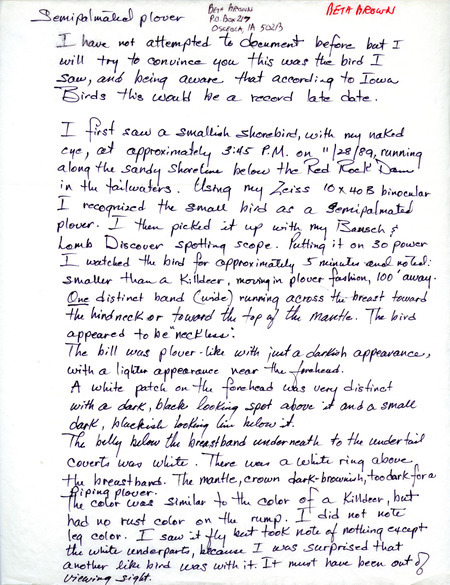 Semipalmated plover
Beth Brown
P.O. Box 217
Osceola, IA 50213
BETH BROWN
I have not attempted to document before but I
will try to convince you this was the bird I
saw, and being aware that according to Iowa
Birds this would be a record late date.
I first saw a smallish shorebird, with my naked
eye, at approximately 3:45 P.M. on 11/28/89, running
along the sandy shoreline below the Red Rock Dam
in the tailwaters. Using my Zeiss 10x40B binocular
I recognized the small bird as a semipalmated
plover. I then picked it up with my Bausch &
Lomb Discover spotting scope. Putting it on 30 power
I watched the bird for approximately 5 minutes and noted:
smaller than a Killdeer, moving in plover fashion, 100' away.
One distinct band (wide) running across the breast toward
the hindneck or toward the top of the mantle. The bird
appeared to be "neckless".
The bill was plover-like with just a darkish appearance,
with a lighter appearance near the forehead.
A white patch on the forehead was very distinct
with a dark, black looking spot above it and a small
dark, blackish looking line below it.
The belly below the breastband underneath to the undertail
coverts was white. There was a white ring above
the breastband. The mantle, crown dark-brownish, too dark for a
Piping plover.
The color was similar to the color of a Killdeer, but
had no rust color on the rump. I did not note
leg color. I saw it fly but took note of nothing except
the white underparts, because I was surprised that
another like bird was with it. It must have been out of
viewing sight.